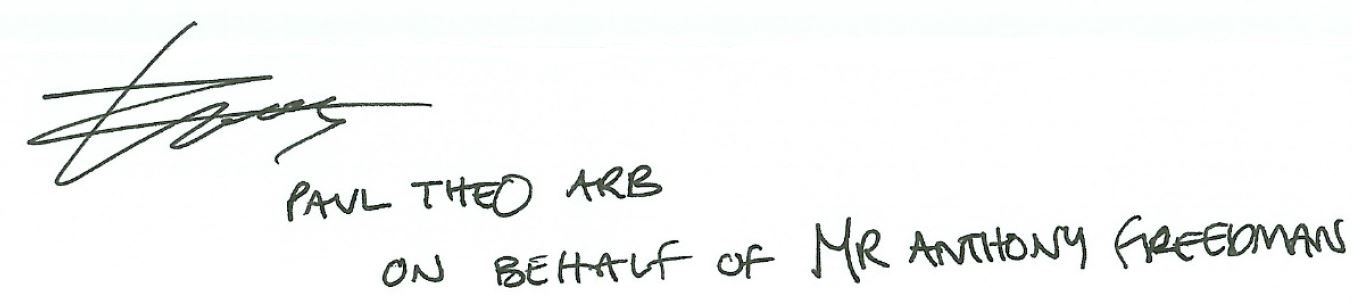 PAUL THEO ARB
ON BEHALF OF MR ANTHONY FREEDMAN